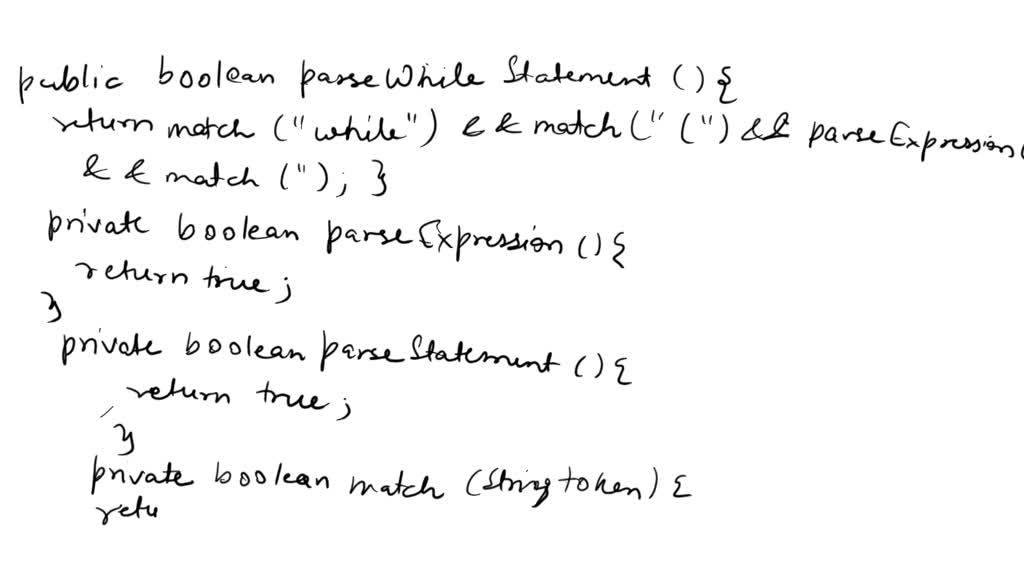 public boolean parseWhile Statement () {
return match ("while") && match (" (") && parseExpression(
&& match ("); }
private boolean parseExpression () {
return true;
}
private boolean parseStatement () {
return true;
}
private boolean match (String token) {
retu